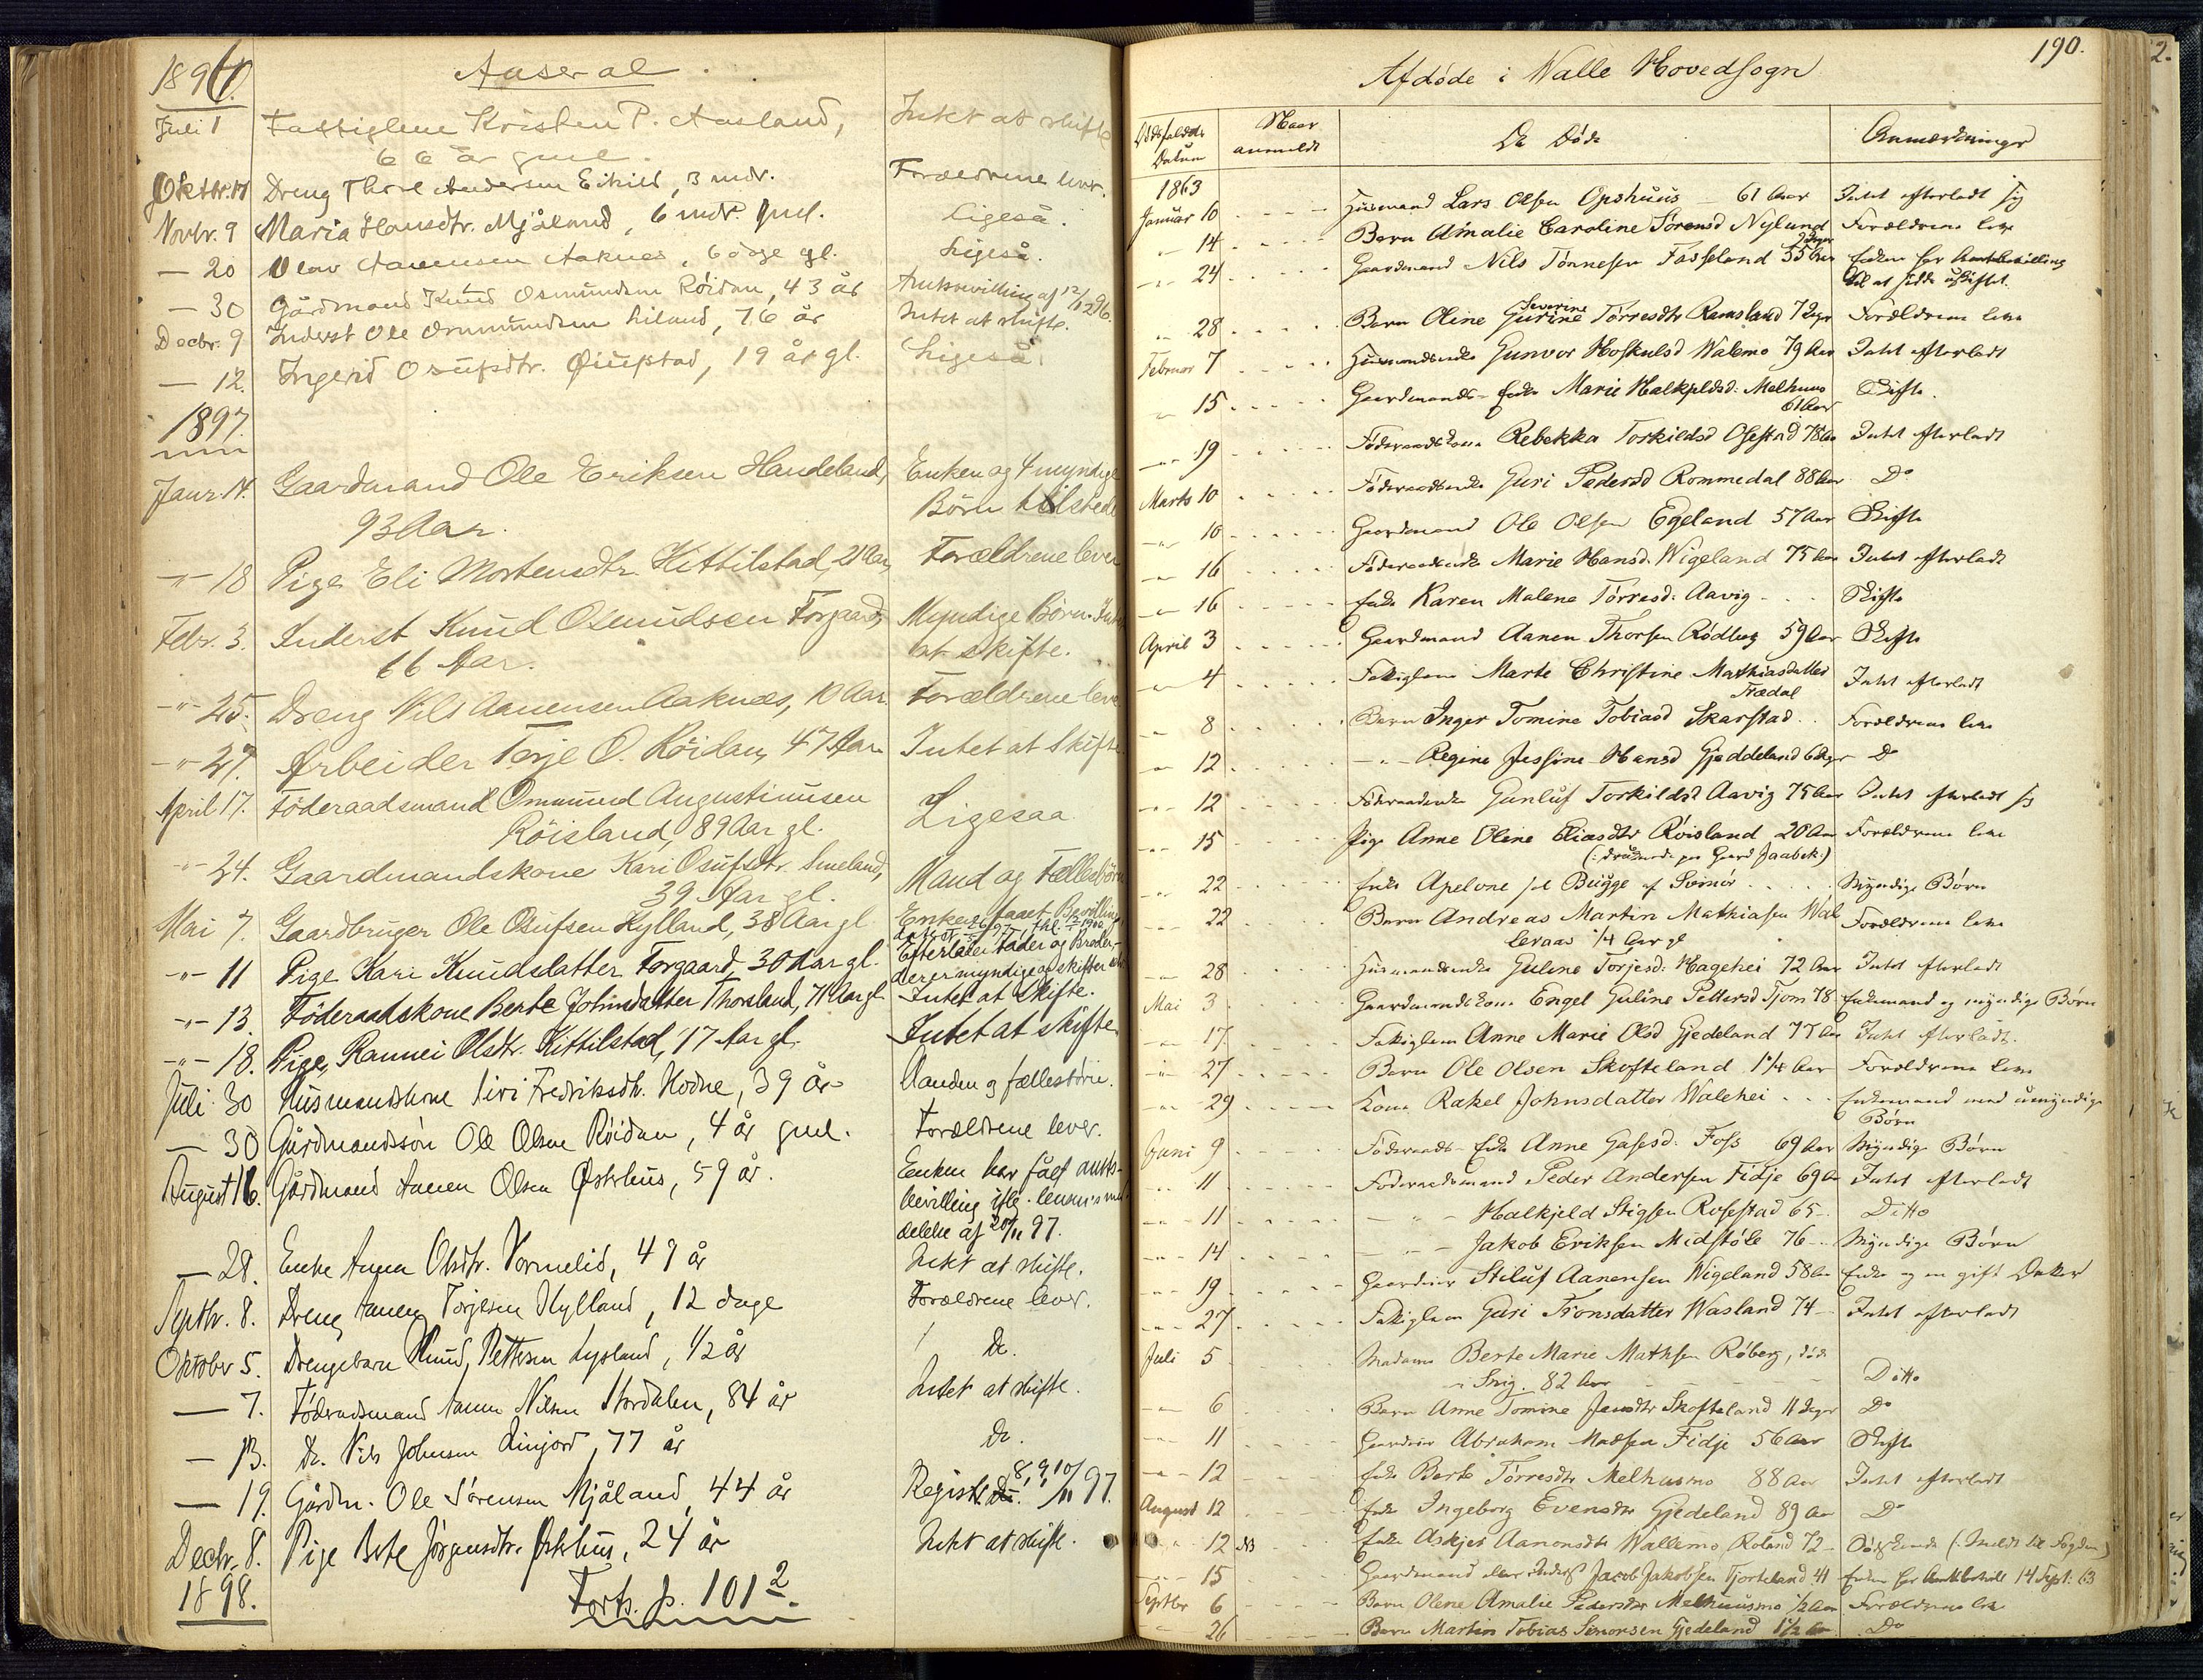 1896.
Aaseral.
Juli 1 Fattiglene Kristen P. Aasland, Intet at skifte
66 år gml.
Oktbr. 17 Dreng Thore Andersen Eikild, 3 mdr. Forældrene lever.
Novbr. 9 Maria Hansdtr. Mjåland, 6 mdr. gml. Ligeså.
— 20 Olav Aanensen Aaknes, 6 dge gl. Ligeså.
— 30 Gårdmand Knud Osmundsen Röidan, 43 år Amtsbevilling af 12/12 96.
Decbr. 9 Inderst Ole Ommundsen Liland, 76 år Intet at skifte.
— 12. Ingerid Osufsdtr. Øiufstad, 19 år gl. Ligeså.
1897.
Janr. 14. Gaardmand Ole Eriksen Handeland, Enken og 4 myndige
93 Aar. Börn tilstede
-"- 18 Pige Eli Mortensdtr. Kittilstad, 21 Aar, Forældrene lever
Febr. 3. Inderst Knud Osmundsen Forgaard, Myndige Börn. Intet
66 Aar. at skifte.
-"- 25. Dreng Nils Aanensen Aaknæs, 10 Aar. Forældrene leve
-"- 27. Arbeider Terje O. Röidan, 47 Aar. Intet at Skifte
April 17. Föderaadsmand Ommund Augustinusen Ligesaa
Röisland, 89 Aar gl.
-"- 24. Gaardmandskone Kari Osufsdtr. Smeland, Mand og Fællesbörn
39 Aar gl.
Mai 7. Gaardbruger Ole Osufsen Hylland, 38 Aar gl. Enken faaet Bevilling
-"- 11 Pige Kari Knudsdatter Forgaard, 30 Aar gl. Efterlader Fader og Brøder,
der er myndige og skifter selv
-"- 13. Föderaadskone Berte Johnsdatter Thorsland, 71 Aar gl. Intet at Skifte.
-"- 18. Pige, Rannei Olsdtr. Kittilstad, 17 Aar gl. Intet at skifte
Juli 30 Husmandskone Siri Fredriksdtr. Hodne, 39 år Manden og fællesbörn.
— 30 Gårdmandssön Ole Olsen Röidan, 4 år gml. Forældrene lever.
August 16. Gårdmand Aanen Olsen Østerhus, 59 år. Enken har fået amts-
bevilling iflg. lensm's med
delelse af 20/11 97.
— 28. Enke Anna Olsdtr. Vormelid, 49 år Intet at skifte.
Septbr. 8. Dreng Aanen Torjesen Hylland, 12 dage Forældrene lever.
Oktober 5. Drengebarn Knud Pettersen Lysland, 1/2 år Do.
— 7. Föderaadsmand Aanen Nilsen Stordalen, 84 år Intet at skifte.
— 13. Do. Nils Johnsen Linjord, 77 år Do.
— 19. Gårdm. Ole Sörensen Mjåland, 44 år Registr. 8, 9, 10/11 97.
Decbr. 8. Pige Berte Jörgensdtr. Østerhus, 24 år Intet at skifte.
1898.
Forts. p. 101 2.
190.
Afdøde i Walle Hovedsogn
Dødsfaldets Datum Naar anmeldt De Døde Anmærkninger
1863
Januar 10 Husmand Lars Olsen Opshuus 61 Aar Intet efterladt sig
" 14 Barn Amalie Caroline Sørensd Nylund Forældrene leve
9 Dage
" 24 Gaardmand Nils Tønnesen Fasseland 35 Aar Enken har Amtsbevilling
til at sidde uskiftet.
Severine
" 28 Barn Oline Gurine Tørresdtr Ramsland 7 Dage Forældrene leve
Februar 7 Husmandsenke Gunvor Hoskulsd Walemo 79 Aar Intet efterladt
" 15 Gaardmands-Enke Marie Halkjeldsd: Melhuus Skifte.
61 Aar
" 19 Föderaadskone Rebekka Torkildsd Osestad 78 Aar Intet efterladt
Marts 10 Föderaadsenke Guri Pedersd Rommedal 88 Aar Do
" 10 Gaardmand Ole Olsen Egeland 57 Aar Skifte
" 16 Föderaadsenke Marie Hansd. Wigeland 75 Aar Intet efterladt
" 16 Enke Karen Malene Tørresd: Aavig Skifte
April 3 Gaardmand Aanen Thorsen Rødberg 59 Aar Skifte
" 4 Fattiglem Marte Christine Mathiasdatter Intet efterladt
Trædal
" 8 Barn Inger Tomine Tobiasd Skarstad Forældrene leve
" 12 -"- Regine Jessine Hansd Gjeddeland 6 Dage Do
" 12 Föderaadsenke Gunluf Torkildsd Aavig 75 Aar Intet efterladt sig
" 15 Pige Anne Oline Eliasdtr Røisland 20 Aar Forældrene leve
(: druknede paa Gaard Jaabek:)
" 22 Enke Apelone sal Bugge af Svinör Myndige Børn
" 22 Barn Andreas Martin Mathiasen Wal Forældrene leve
leraas 1/4 Aar gl
" 28 Husmandsenke Guline Torjesd: Hagehei 72 Aar Intet efterladt
Mai 3 Gaardmandskone Engel Guline Pettersd Tjom 78 Enkemand og myndige Børn
" 17 Fattiglem Anne Marie Olsd Gjedeland 77 Aar Intet efterladt.
" 27 Barn Ole Olsen Skofteland 1 1/4 Aar Forældrene leve
" 29 Kone Rakel Johnsdatter Walehei Enkemand med umyndige
Børn
Juni 9 Föderaads-Enke Anne Gasesd: Foss 69 Aar Myndige Børn
" 11 Föderaadsmand Peder Andersen Fidje 69 Aar Intet efterladt
" 11 — " — Halkjeld Stigsen Rosestad 65 Ditto
" 14 — " — Jakob Eriksen Midstøle 76 Myndige Børn
" 19 Gaardeier Steluf Aanensen Wigeland 58 Aar Enke og en gift Datter
" 27 Fattiglem Guri Tronsdatter Wasland 74 Intet efterladt
Juli 5 Madame Berte Marie Mathsen Røberg, død
i Snig. 82 Aar Ditto
" 6 Barn Anne Tomine Jensdtr Skofteland 11 Dage Do
" 11 Gaardeier Abraham Madsen Fidje 56 Aar Skifte
" 12 Enke Berte Tørresdtr Melhusmo 88 Aar Intet efterladt
August 12 Enke Ingeborg Evensdtr Gjedeland 89 Aar Do
" 12 NB Enke Askjer Aanonsdtr Wallemo, Roland 72 (: Meldt til Fogden)
" 15 Gaardmand eller Inderst Jacob Jakobsen Tjorteland 41 Enken har Amtsbevill 14 Sept. 63
Septbr 6 Barn Olene Amalie Pedersdtr Melhuusmo 1/2 Aar Forældrene leve
" 26 Barn Martin Tobias Simonsen Gjedeland 1 1/2 Aar Do